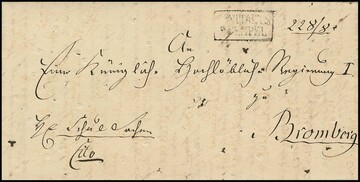 228/8.
An
Eine Königlich Hochlöbliche Regierung I
zu
Bromberg
Schul Sachen
Cito